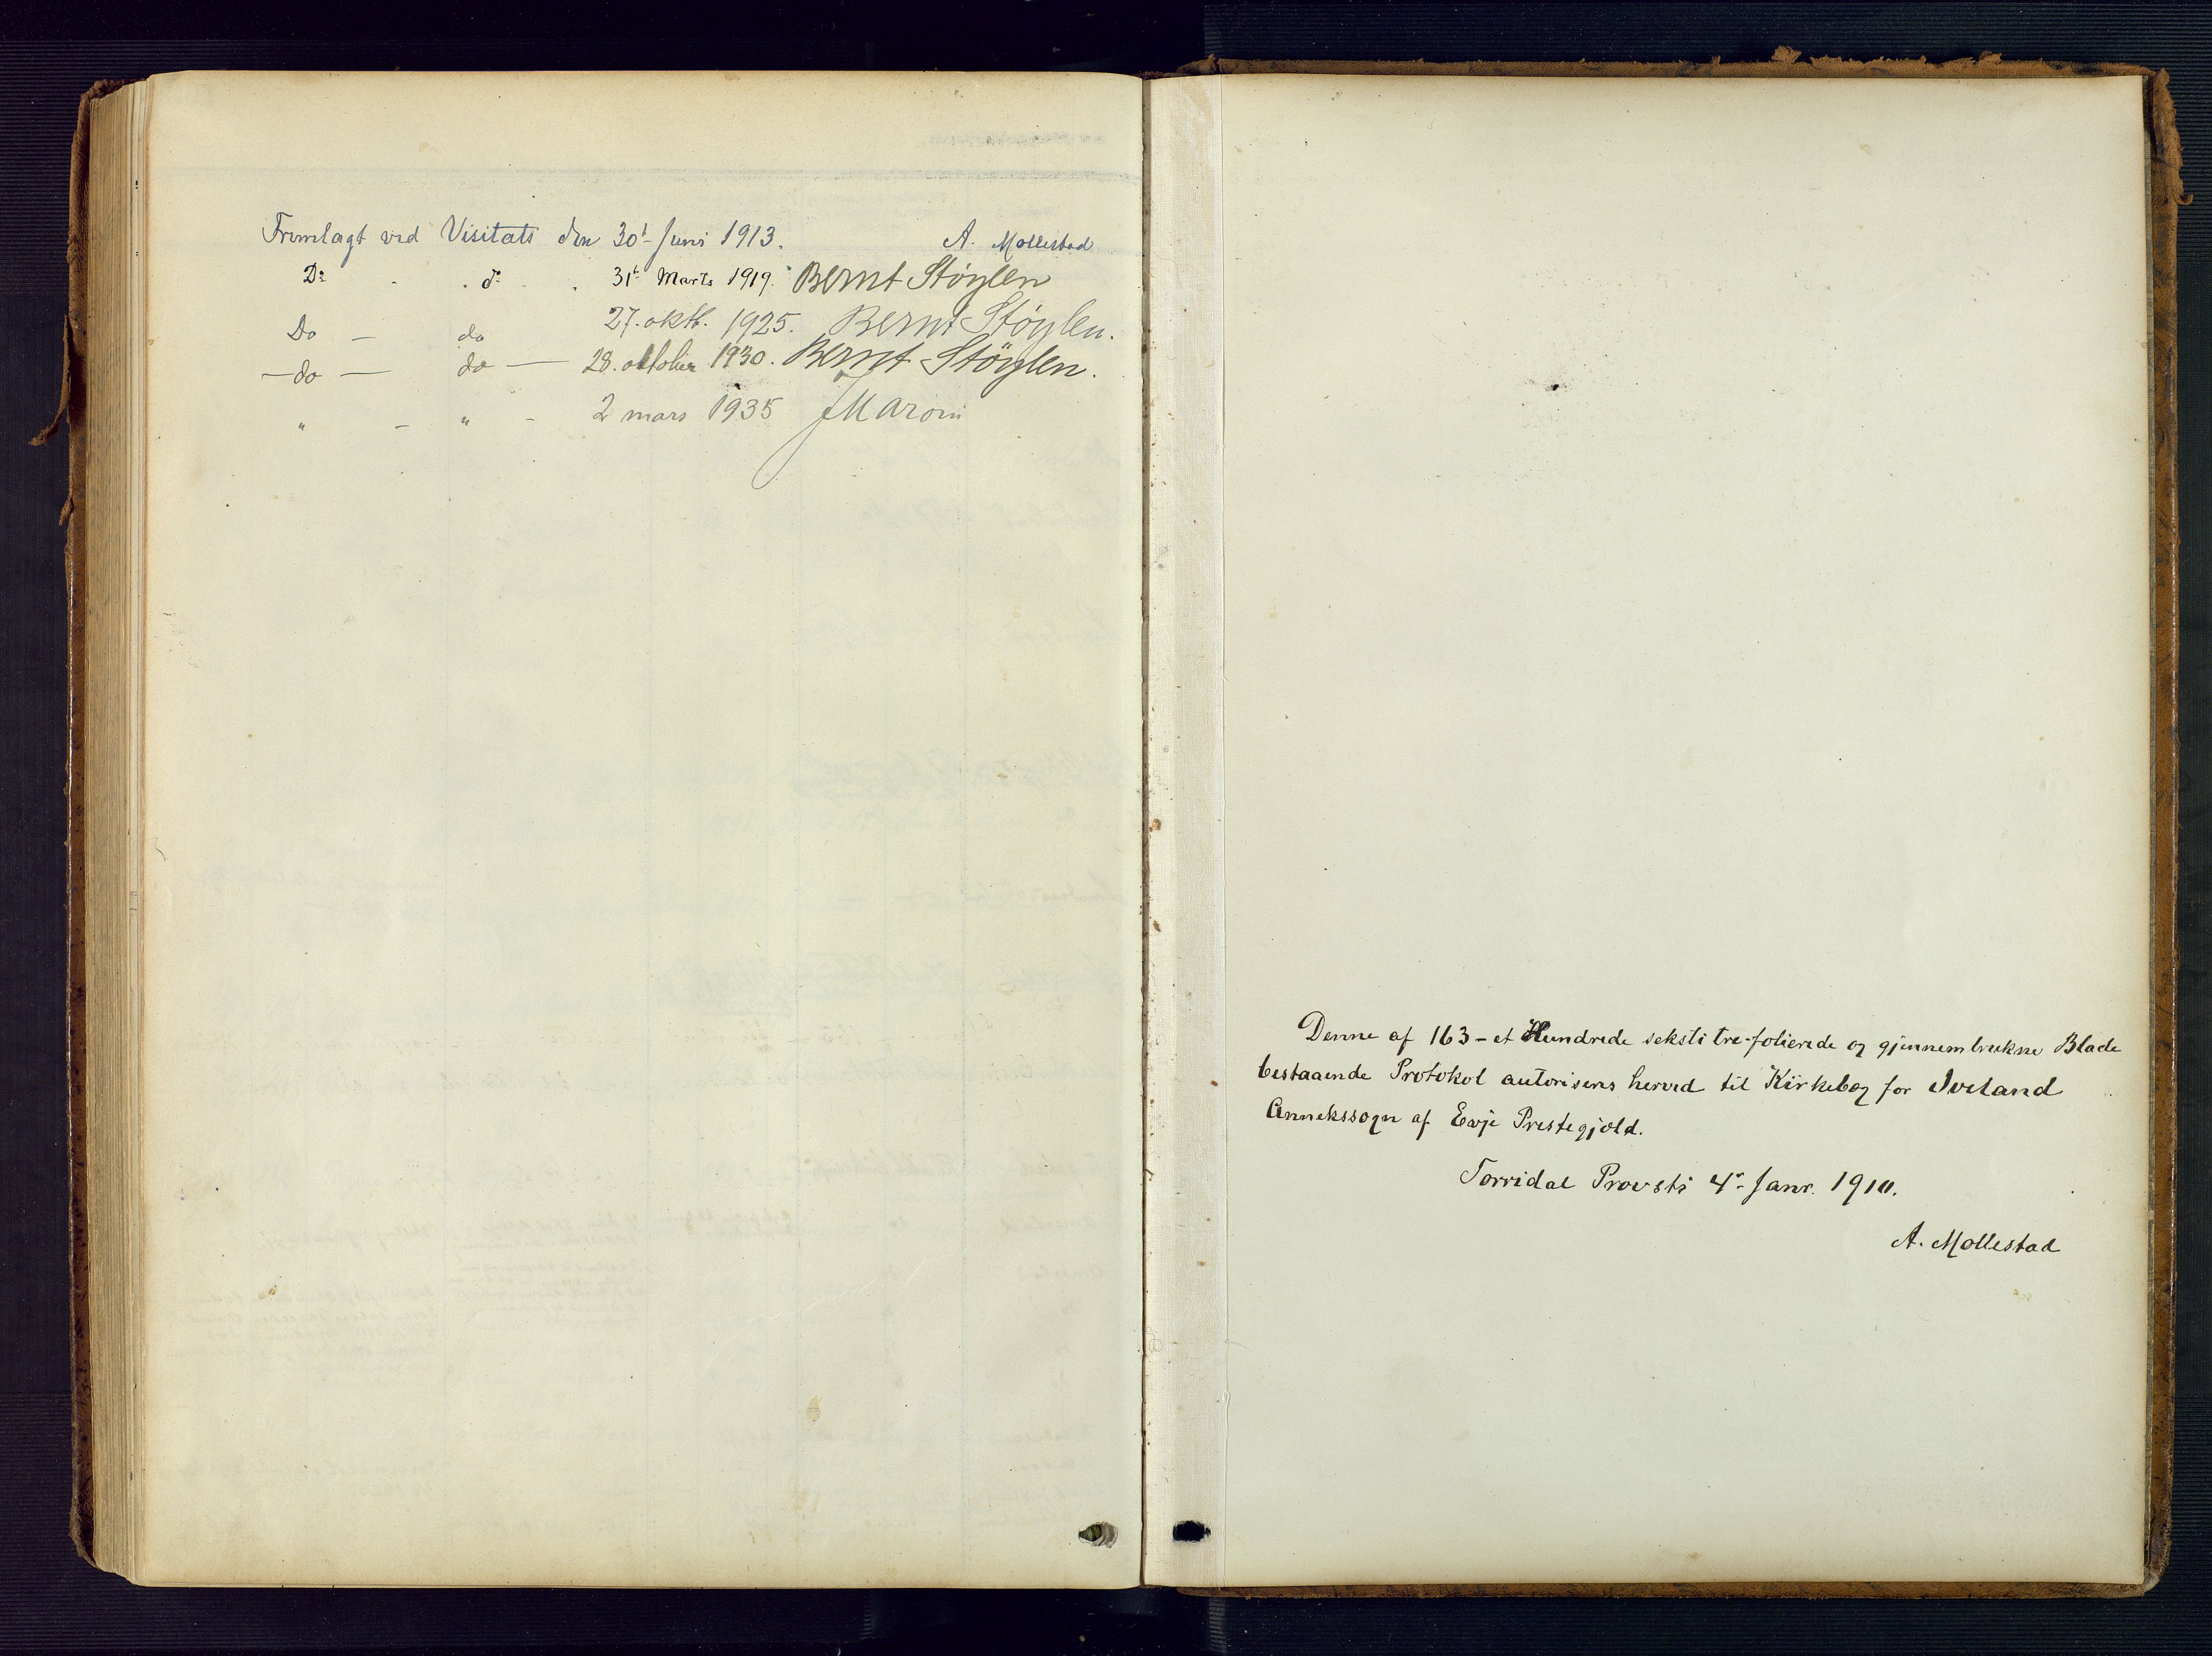 Fremlagt ved Visitats den 30t Juni 1913. A. Mollestad
Do - . do . 31t Marts 1919. Bernt Støylen
Do - do 27. oktb. 1925. Bernt Støylen.
- do - do - 28. oktober 1930. Bernt Støylen.
" - " - 2 mars 1935 J Maroni
Denne af 163 - et Hundrede seksti tre - folierede og gjennemtrukne Blade
bestaaende Protokol autoriseres herved til Kirkebog for Iveland
Annekssogn af Evje Prestegjæld.
Torridal Provsti 4de Janr. 1910.
A. Mollestad